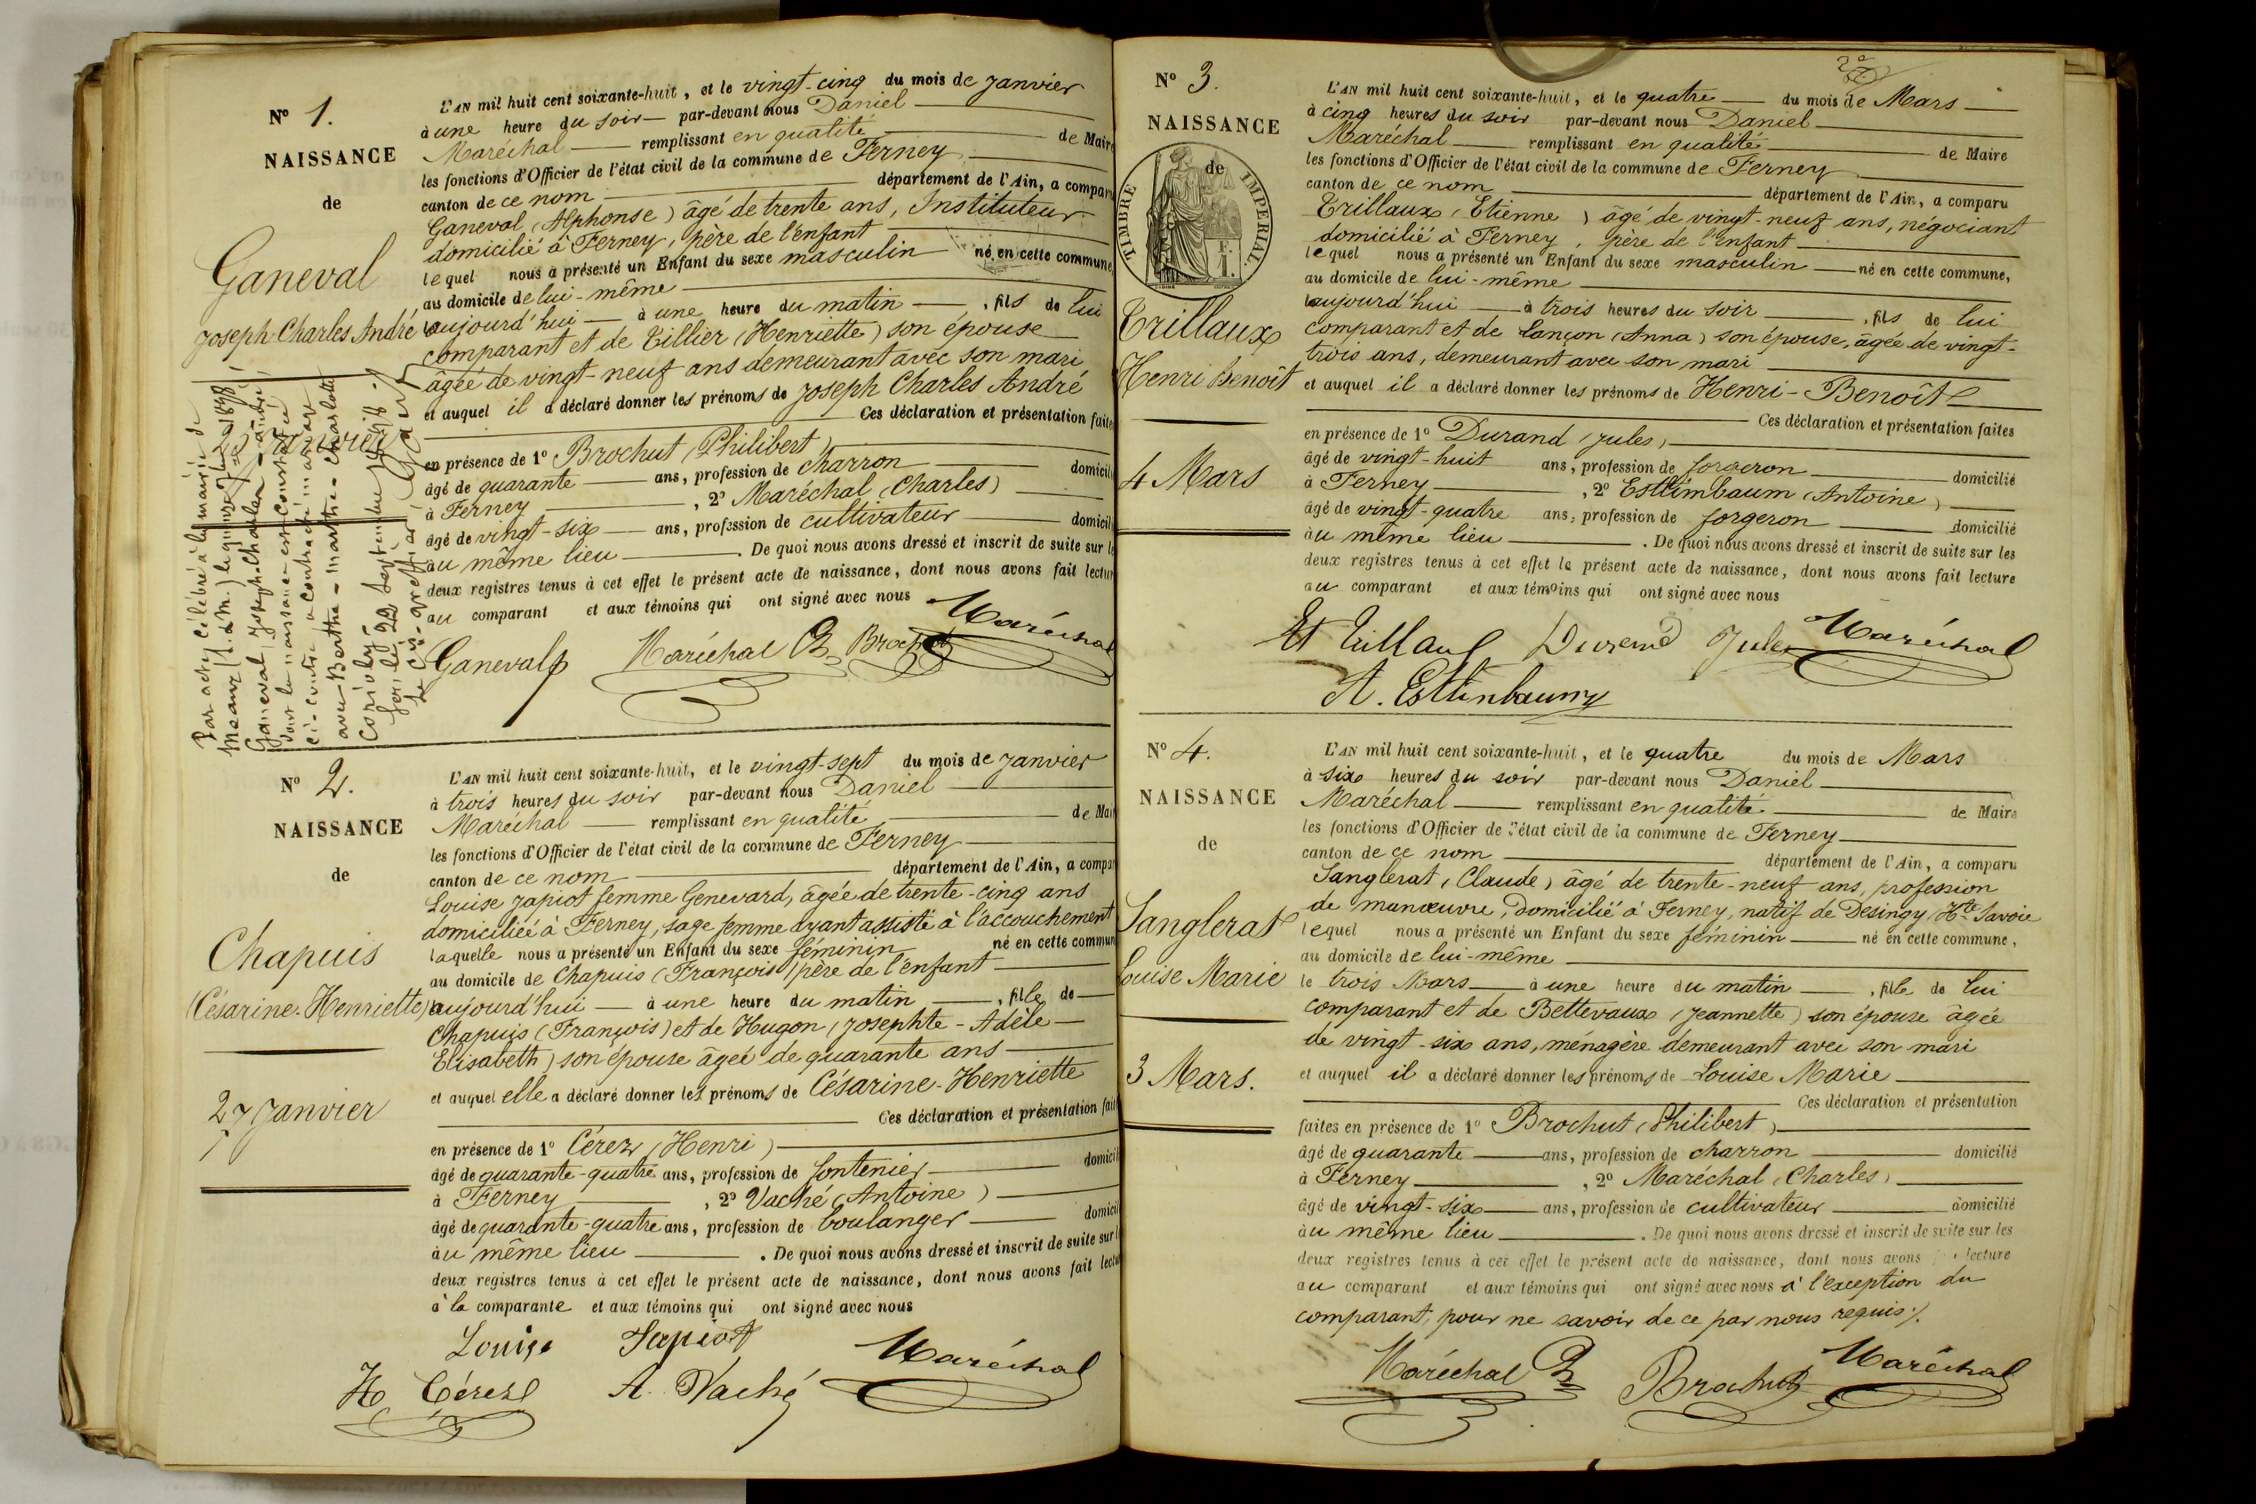 N° 1.
NAISSANCE
de
Ganeval
Joseph Charles André
25 Janvier
L'AN mil huit cent soixante-huit, et le vingt-cinq du mois de Janvier
à une heure du soir par-devant nous Daniel
Maréchal remplissant en qualité de Maire
les fonctions d'Officier de l'état civil de la commune de Ferney
canton de ce nom département de l'Ain, a comparu
Ganeval (Alphonse) âgé de trente ans, Instituteur
domicilié à Ferney, père de l'enfant
lequel nous a présenté un Enfant du sexe masculin né en cette commune,
au domicile de lui-même
aujourd'hui à une heure du matin, fils de lui
comparant et de Tillier (Henriette) son épouse
âgée de vingt-neuf ans demeurant avec son mari
et auquel il a déclaré donner les prénoms de Joseph Charles André
Ces déclaration et présentation faites
en présence de 1° Brochut (Philibert)
âgé de quarante ans, profession de charron domicilié
à Ferney, 2° Maréchal (Charles)
âgé de vingt-six ans, profession de cultivateur domicilié
au même lieu. De quoi nous avons dressé et inscrit de suite sur le
deux registres tenus à cet effet le présent acte de naissance, dont nous avons fait lecture
au comparant et aux témoins qui ont signé avec nous
Maréchal
Ganeval Maréchal Ch Brochut
Par acte célébré à la mairie de
Meaux (S. & M.) le
Ganeval, Joseph-Charles-André,
dont la naissance est constatée
ci-contre a contracté mariage
avec Berthe-Marthe-Charlotte
N° 2.
NAISSANCE
de
Chapuis
(Césarine-Henriette)
27 Janvier
L'AN mil huit cent soixante-huit, et le vingt-sept du mois de Janvier
à trois heures du soir par-devant nous Daniel
Maréchal remplissant en qualité de Mai
les fonctions d'Officier de l'état civil de la commune de Ferney
canton de ce nom département de l'Ain, a compar
Louise Japiot femme Genevard, âgée de trente-cinq ans
domiciliée à Ferney, sage femme ayant assisté à l'accouchement
laquelle nous a présenté un Enfant du sexe féminin né en cette commun
au domicile de Chapuis (François) père de l'enfant
aujourd'hui à une heure du matin, fille de
Chapuis (François) et de Hugon (Josephte-Adèle
Elisabeth) son épouse âgée de quarante ans
et auquel elle a déclaré donner les prénoms de Césarine-Henriette
Ces déclaration et présentation fait
en présence de 1° Cérez (Henri)
âgé de quarante-quatre ans, profession de fontenier domicil
à Ferney, 2° Vaché (Antoine)
âgé de quarante-quatre ans, profession de boulanger domicil
au même lieu. De quoi nous avons dressé et inscrit de suite sur l
deux registres tenus à cet effet le présent acte de naissance, dont nous avons fait lectu
à la comparante et aux témoins qui ont signé avec nous
Louise Japiot Maréchal
H Cérez A. Vaché
N° 3.
NAISSANCE
de
TIMBRE IMPERIAL
Trillaux
Henri Benoît
4 Mars
L'AN mil huit cent soixante-huit, et le quatre du mois de Mars
à cinq heures du soir par-devant nous Daniel
Maréchal remplissant en qualité de Maire
les fonctions d'Officier de l'état civil de la commune de Ferney
canton de ce nom département de l'Ain, a comparu
Trillaux (Etienne) âgé de vingt-neuf ans, négociant
domicilié à Ferney, père de l'enfant
lequel nous a présenté un Enfant du sexe masculin né en cette commune,
au domicile de lui-même
aujourd'hui à trois heures du soir, fils de lui
comparant et de Lançon (Anna) son épouse, âgée de vingt-
trois ans, demeurant avec son mari
et auquel il a déclaré donner les prénoms de Henri-Benoît
Ces déclaration et présentation faites
en présence de 1° Durand (Jules)
âgé de vingt-huit ans, profession de forgeron domicilié
à Ferney, 2° Estlimbaum (Antoine)
âgé de vingt-quatre ans, profession de forgeron domicilié
au même lieu. De quoi nous avons dressé et inscrit de suite sur les
deux registres tenus à cet effet le présent acte de naissance, dont nous avons fait lecture
au comparant et aux témoins qui ont signé avec nous
Et Trillaux Durand Jules Maréchal
A. Estlinbaum
N° 4.
NAISSANCE
de
Sanglerat
Louise Marie
3 Mars.
L'AN mil huit cent soixante-huit, et le quatre du mois de Mars
à six heures du soir par-devant nous Daniel
Maréchal remplissant en qualité de Maire
les fonctions d'Officier de l'état civil de la commune de Ferney
canton de ce nom département de l'Ain, a comparu
Sanglerat (Claude) âgé de trente-neuf ans, profession
de manœuvre, domicilié à Ferney, natif de Desingy Hte Savoie
lequel nous a présenté un Enfant du sexe féminin né en cette commune,
au domicile de lui-même
le trois Mars à une heure du matin, fille de lui
comparant et de Bettevaux (Jeannette) son épouse âgée
de vingt-six ans, ménagère demeurant avec son mari
et auquel il a déclaré donner les prénoms de Louise Marie
Ces déclaration et présentation
faites en présence de 1° Brochut (Philibert)
âgé de quarante ans, profession de charron domicilié
à Ferney, 2° Maréchal (Charles)
âgé de vingt-six ans, profession de cultivateur domicilié
au même lieu. De quoi nous avons dressé et inscrit de suite sur les
deux registres tenus à cet effet le présent acte de naissance, dont nous avons lecture
au comparant et aux témoins qui ont signé avec nous à l'exception du
comparant, pour ne savoir de ce par nous requis./.
Maréchal Ch Brochut Maréchal